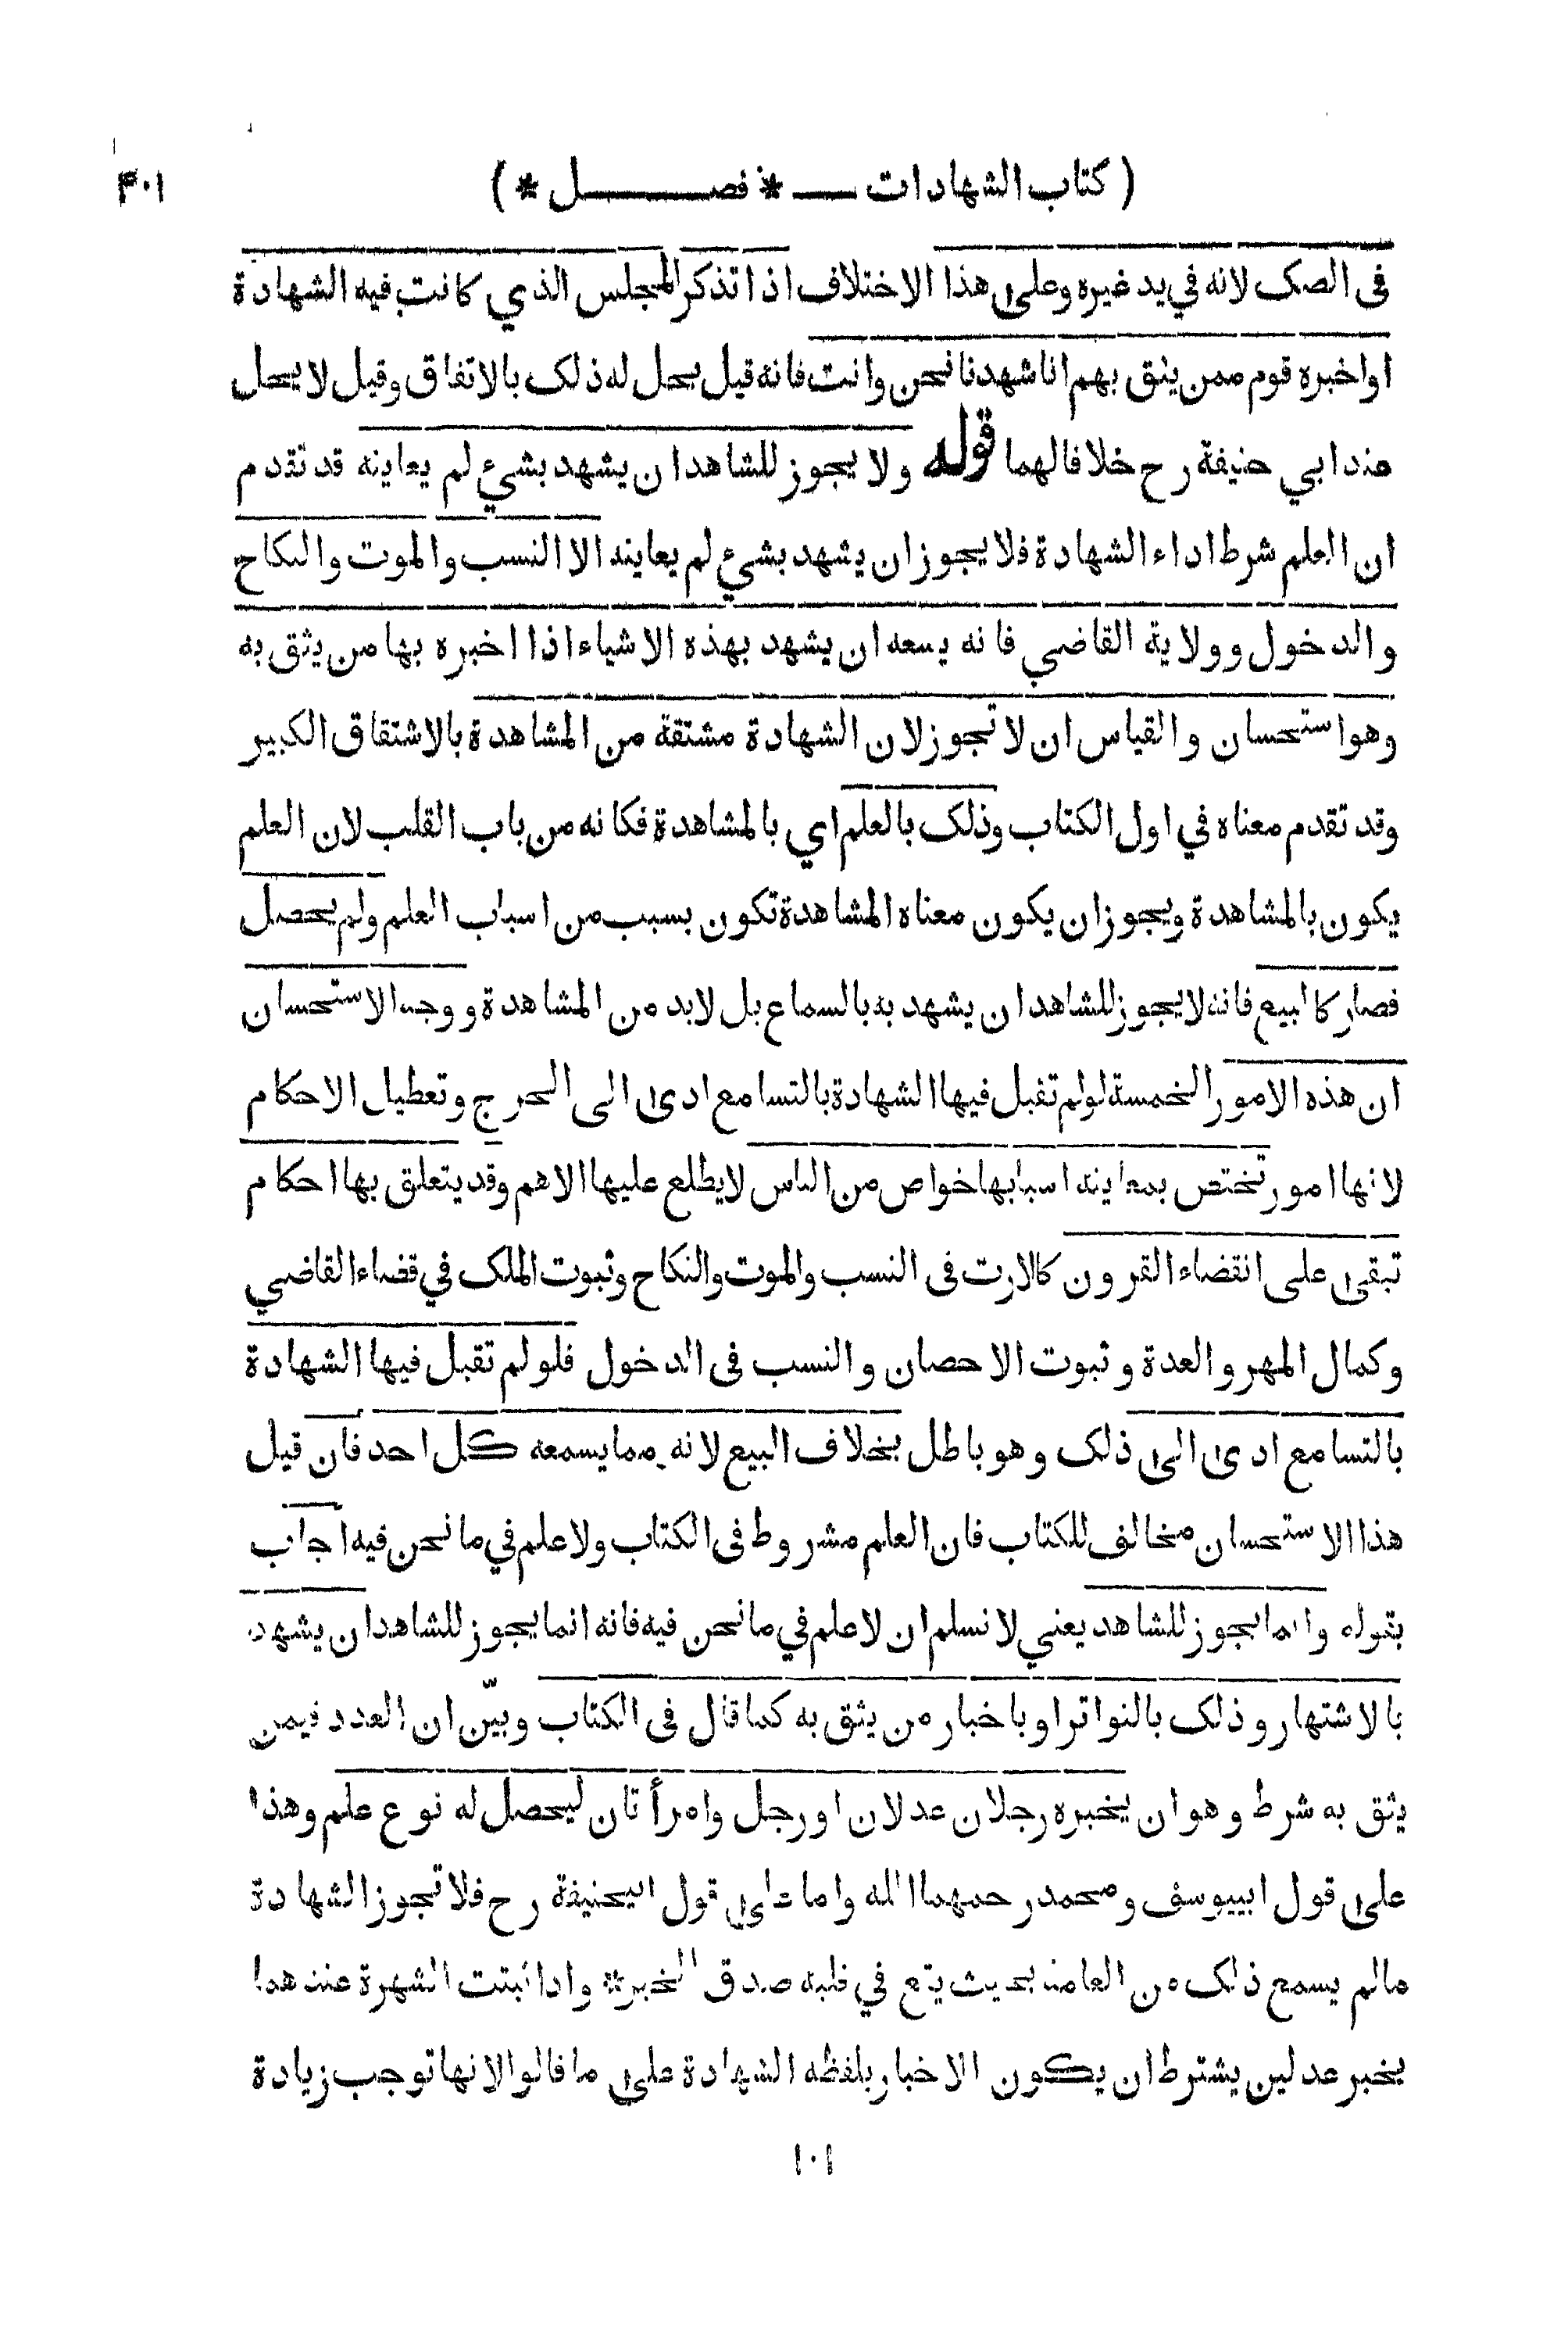 ( كتاب الشهادات — * فصــــل * )
۴۰۱
فى الصك لانه في يد غيره وعلى هذا الاختلاف اذا تذكر المجلس الذي كانت فيه الشهادة
او اخبره قوم ممن يثق بهم انا شهدنا نحن وانت فانه قيل يحل له ذلك بالاتفاق وقيل لا يحل
عند ابي حنيفة رح خلافا لهما قوله ولا يجوز للشاهد ان يشهد بشيء لم يعاينه قد تقدم
ان العلم شرط اداء الشهادة فلا يجوز ان يشهد بشيء لم يعاينه الا النسب والموت والنكاح
والدخول وولاية القاضي فانه يسعه ان يشهد بهذه الاشياء اذا اخبره بها من يثق به
وهو استحسان والقياس ان لا تجوز لان الشهادة مشتقة من المشاهدة بالاشتقاق الكبير
وقد تقدم معناه في اول الكتاب وذلك بالعلم اي بالمشاهدة فكانه من باب القلب لان العلم
يكون بالمشاهدة ويجوز ان يكون معناه المشاهدة تكون بسبب من اسباب العلم ولم يحصل
فصار كالبيع فانه لا يجوز للشاهد ان يشهد به بالسماع بل لابد من المشاهدة ووجه الاستحسان
ان هذه الامور الخمسة لو لم تقبل فيها الشهادة بالتسامع ادى الى الحرج وتعطيل الاحكام
لانها امور تختص بمعاينة اسبابها خواص من الناس لا يطلع عليها الا هم وقد يتعلق بها احكام
تبقى على انقضاء القرون كالارث فى النسب والموت والنكاح وثبوت الملك في قضاء القاضي
وكمال المهر والعدة وثبوت الاحصان والنسب فى الدخول فلو لم تقبل فيها الشهادة
بالتسامع ادى الى ذلك وهو باطل بخلاف البيع لانه مما يسمعه كل احد فان قيل
هذا الاستحسان مخالف للكتاب فان العلم مشروط فى الكتاب ولا علم في ما نحن فيه اجاب
بقوله وانما يجوز للشاهد يعني لا نسلم ان لا علم في ما نحن فيه فانه انما يجوز للشاهد ان يشهد
بالاشتهار وذلك بالتواتر او باخبار من يثق به كما قال فى الكتاب وبيّن ان العدد فيمن
يثق به شرط وهو ان يخبره رجلان عدلان او رجل وامرأتان ليحصل له نوع علم وهذا
على قول ابييوسف ومحمد رحمهما الله واما على قول ابيحنيفة رح فلا تجوز الشهادة
مالم يسمع ذلك من العامة بحيث يقع في قلبه صدق الخبر * واذا ثبتت الشهرة عندهما
بخبر عدلين يشترط ان يكون الاخبار بلفظه الشهادة على ما قالوا لانها توجب زيادة
١٠١